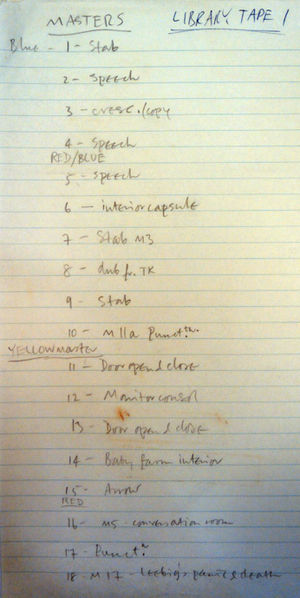 MASTERS LIBRARY TAPE 1
Blue - 1 - Stab
2 - Speech
3 - cresc./copy
4 - Speech
RED/BLUE
5 - Speech
6 - interior capsule
7 - Stab M3
8 - dub fr. TK
9 - Stab
10 - M11a Punct.tn.
YELLOW master
11 - Door open & close
12 - Monitor consol
13 - Door open & close
14 - Baby farm interior
15 - Arrow
RED
16 - M5 - conversation room
17 - Punct.n
18 - M17 - Leebig's panic & death